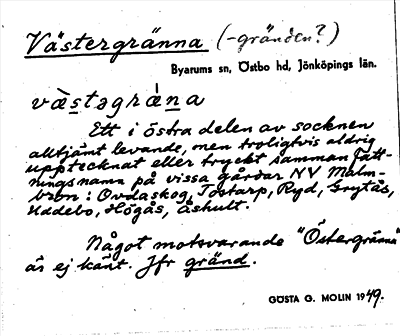 Västergränna (-gränden?)
Byarums sn, Östbo hd, Jönköpings län.
väs̲təgrän̲a
Ett i östra delen av socknen
alltjämt levande, men troligtvis aldrig
upptecknat eller tryckt sammanfatt-
ningsnamn på vissa gårdar NV Malm-
bron: Ovdaskog, Tostarp, Ryd, Grytås,
Uddebo, Högås, Åshult.
Något motsvarande "Östergränna"
är ej känt. Jfr gränd.
GÖSTA G. MOLIN 1949.